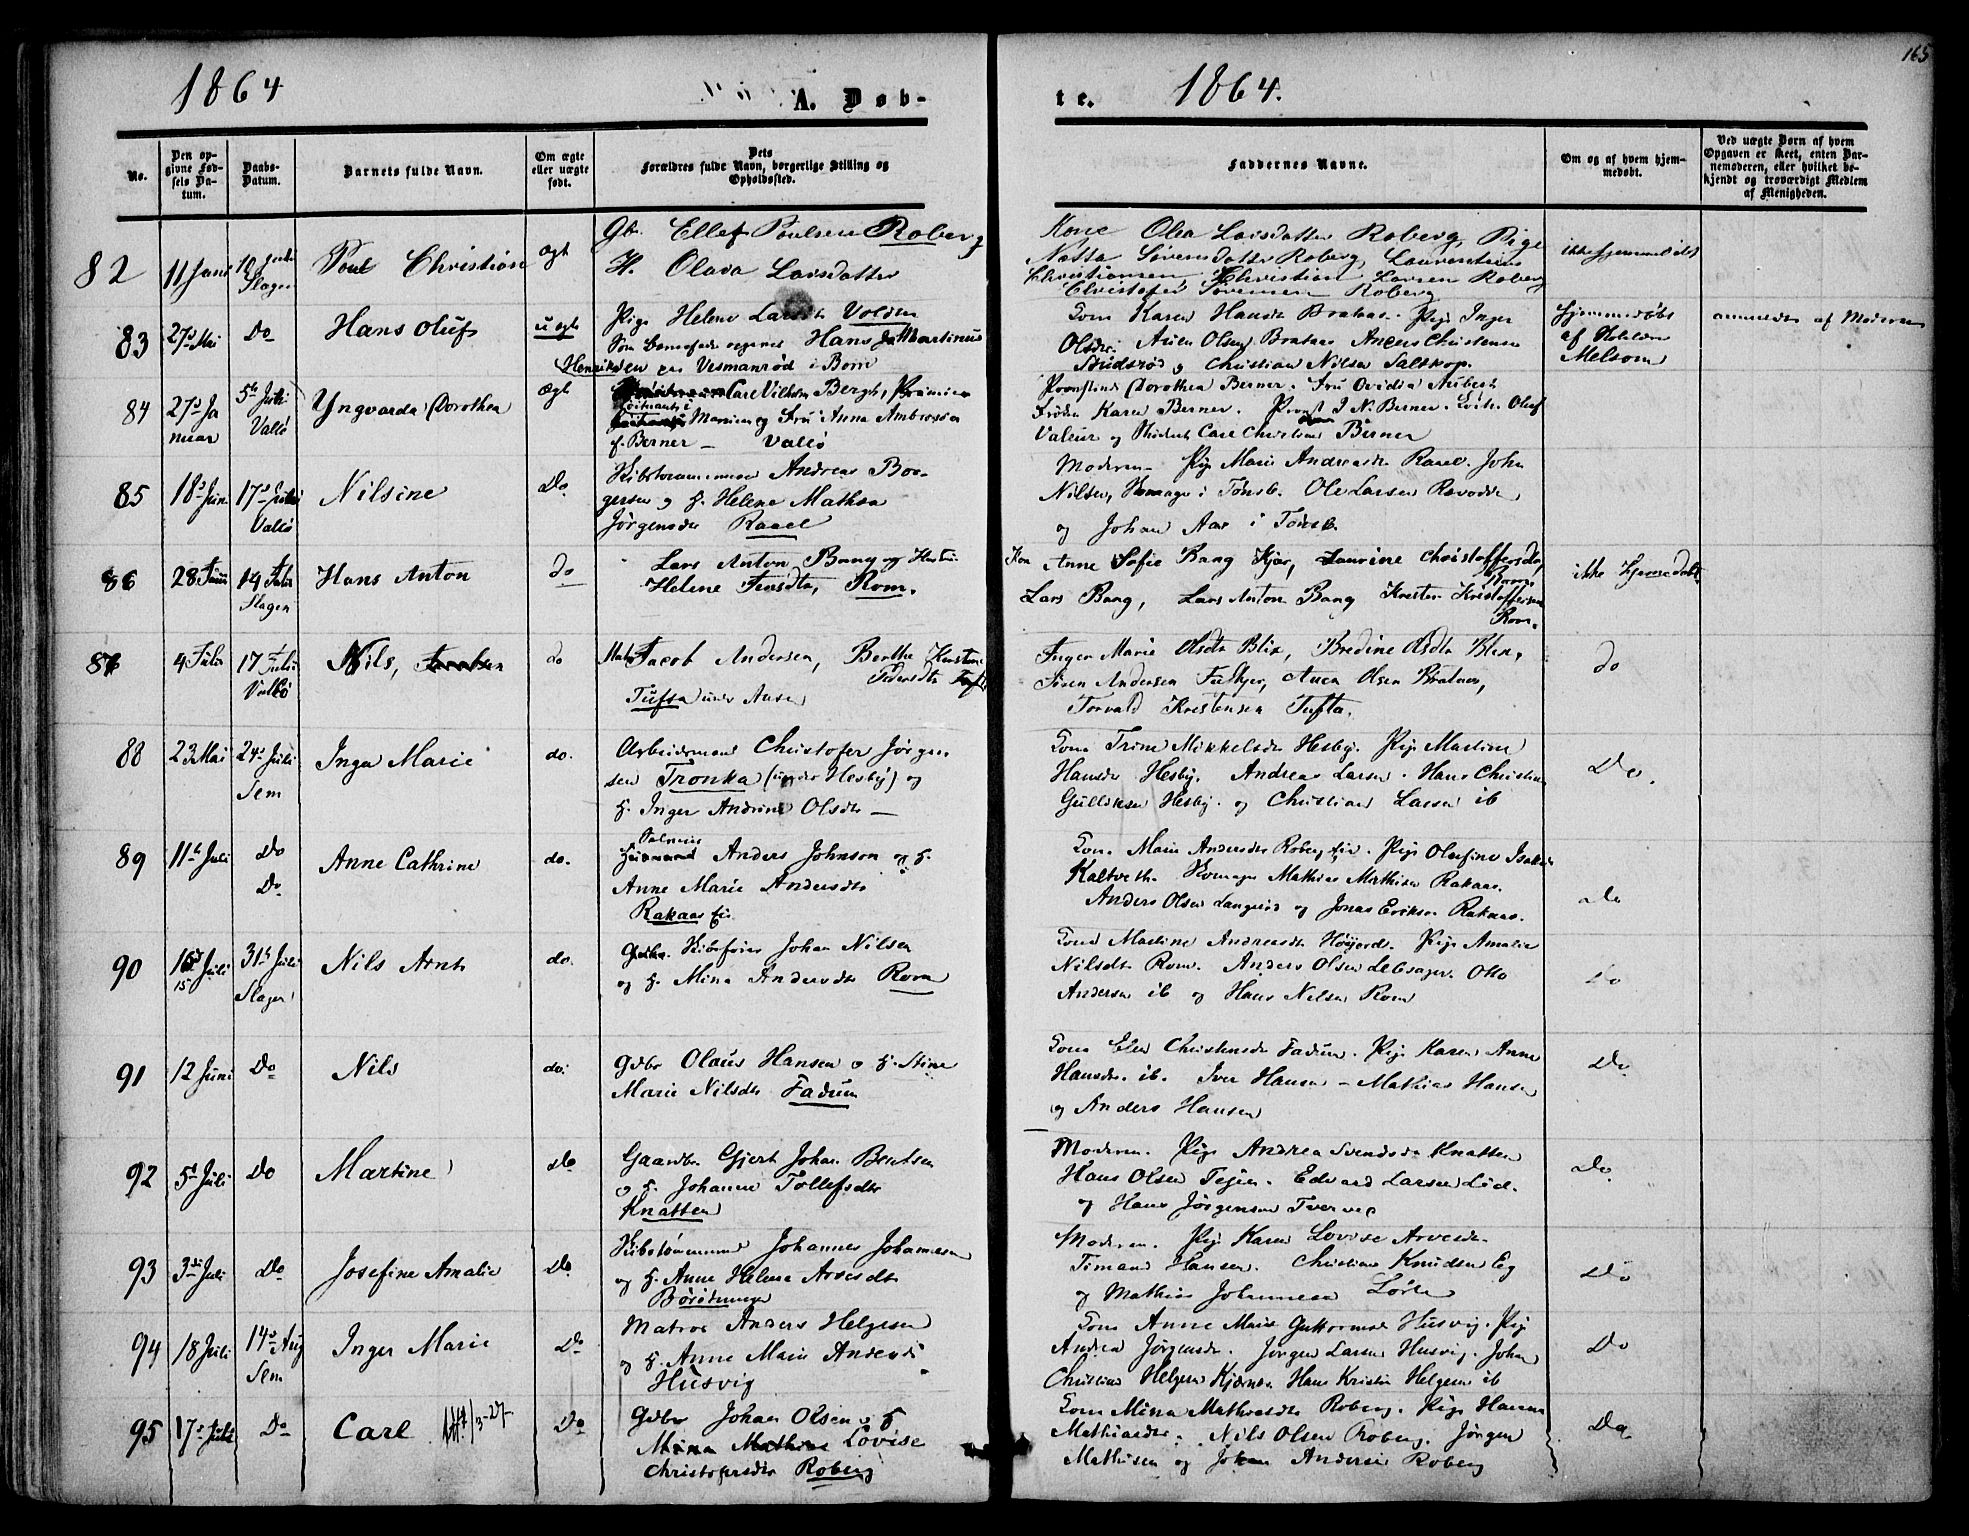 165
1864
A. Døb-
te.
1864.
No.
Den op-
givne Fød-
sels Da-
tum.
Daabs-
Datum.
Barnets fulde Navn.
Om ægte
eller uægte
født.
Dets
Forældres fulde Navn, borgerlige Stilling og
Opholdssted.
Faddernes Navne.
Om og af hvem hjem-
medøbt.
Ved uægte Børn af hvem
Opgaven er skeet, enten Bar-
nemoderen, eller hvilket be-
kjendt og troværdigt Medlem
af Menigheden.
82
11 Juni
Slagen
Poul Christian
ægt
Gb. Ellef Poulsen Roberg
H. Olava Larsdatter
Kone Olea Larsdatter Roberg, Pige
Sørensdatter Roberg, Laurentius
Christiansen, Christian Larsen Roberg
Christofer Sørensen Roberg
ikke hjemmedøbt
83
27 Mai
Do
Hans Oluf
uægt
Pige Helene Larsdt Volden
Som Barnefader opgives Hans Martinus
Henriksen Vesmanrød i Borre
Gone Karen Hansdt Brataas. Pige Inger
Olsdt. Olsen Brataas Christensen
og Christian Nilsen Saltkop.
Hjemmedøbt
af
Melsom
anmeldt af Moderen
84
27 Ja
nuar
5te Juli
Vallø
Yngvarda Dorothea
Ægt
Carl Vilhelm Bergh, Premier
Løitnant i
Marinen og Fru Anna Ambrosia
f. Berner — Vallø
Provstinde Dorothea Berner. Fru Ovidia Aubert
Frøken Karen Berner. Provst J N. Berner. Løit. Oluf
Valeur og Student Carl Christian Berner
85
18 Jun
17 Juli
Vallø
Nilsine
Do
Skibstømmermand Andreas Bor-
gersen og H. Helene Mathea
Jørgensdt Raael
Moderen. Pige Marie Andreasdt Raael. John
Nilsen, i Tønsb. Ole Larsen
og Johan Aas i Tønsb.
86
28 Juni
14 Juli
Slagen
Hans Anton
do
Lars Anton Bang og Hustru
Helene Jensdtr, Rom.
Kon Anne Sofie Bang Kjær, Laurine Christoffersdtr
Rom.
Lars Bang, Lars Anton Bang Kristen Kristoffersen
Rom.
ikke hjemmedøbt
87
4 Juli
17 Juli
Vallø
Nils,
do
Mat. Jacob Andersen, Berthe Kirstine
Pedersdtr
Tufta under
Inger Marie Olsdtr Blix, Bredine Olsdtr Blix,
Søren Andersen Olsen Brataas,
Torvald Kristensen Tufta.
do
88
23 Mai
24 Juli
Sem
Inga Marie
do.
Arbeidsmand Christofer Jørgen-
sen Tronka (under Hesby) og
H. Inger Andrine Olsdtr —
Gone Trine Mikkelsdt Hesby. Pige Martine
Hansdt Hesby. Andreas Larsen. Hans Christian
Gulliksen Hesby. og Christian Larsen ib
Do.
89
11te Juli
Do
Do
Anne Cathrine
do.
Anders Johnson og H.
Anne Marie Andersdtr
Rakaas
Gone Marie Andersdt Roberg eie. Pige Olefine
Kaltveth. Mathias Mathisen Rakaas.
Anders Olsen og Jonas Eriksen Rakaas.
do
90
15
Juli
31te Juli
Slagen
Nils Arnt
do.
Skibsfører Johan Nilsen
og H. Mina Andersdtr Rom
Gone Martine Andreasdt Høijord. Pige Amalie
Nilsdtr Rom. Anders Olsen. Otto
Andersen ib og Hans Nilsen Rom
Do
91
12 Juni
Do
Nils
do.
Gdbr Olaus Hansen & H. Stine
Marie Nilsdtr Fadum
Gone Christensdt Fadum. Pige Karen Anne
Hansdt. ib. Iver Hansen — Mathias Hansen
og Anders Hansen
Do
92
5te Juli
Do
Martine
Do
Gaardbr Gjert Johan Bentsen
& H. Johanne Tollefsdtr
Knatten
Moderen. Pige Andrea Svendsdt Knatten
Hans Olsen Teien. Edvard Larsen Lid.
og Hans Jørgensen
Do
93
3die Juli
Do
Josefine Amalie
Do
Skibstømmermand Johannes Johannesen
og H. Anne Helene Arvesdtr
Moderen. Pige Karen Lovise Arvesdt.
Timand Hansen. Christian Knudsen Eg
og Mathias Johannesen
Do
94
18 Juli
14 Aug
Sem
Inger Marie
Do
Matros Anders Helgesen
og H. Anne Marie Andersdt
Husvig
Gone Anne Marie Guttormsd Husvig. Pige
Andrea Jørgensdt. Jørgen Larsen Husvig. Johan
Christian Helgesen Kjærnes Hans Kristian Helgesen ib
Do
95
17 Juli
Do
Carl
Do
Gdbr Johan Olsen & H
Mina Lovise
Christofersdtr Roberg
Gone Mina Mathiasdt Roberg. Pige Hanna
Mathiasdtr. Nils Olsen Roberg. Jørgen
Mathisen og Johan Andersen Roberg
Do